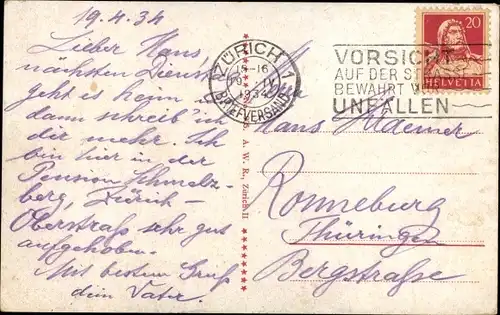 19.4.34
Lieber Hans,
nächsten Dienst.
geht es heim
dann schreib' ich
dir mehr. Ich
bin hier in der
Pension Schmelz-
berg, Zürich-
Oberstraß sehr gut
aufgehoben.
Mit bestem Gruß
dein Vater.
S. A. W. R., Zürich II
ZÜRICH 1
15-16
1934
BRIEFVERSAND
VORSICHT
AUF DER
BEWAHRT
UNFÄLLEN
20
HELVETIA
Hans
Ronneburg
Thüringen
Bergstraße